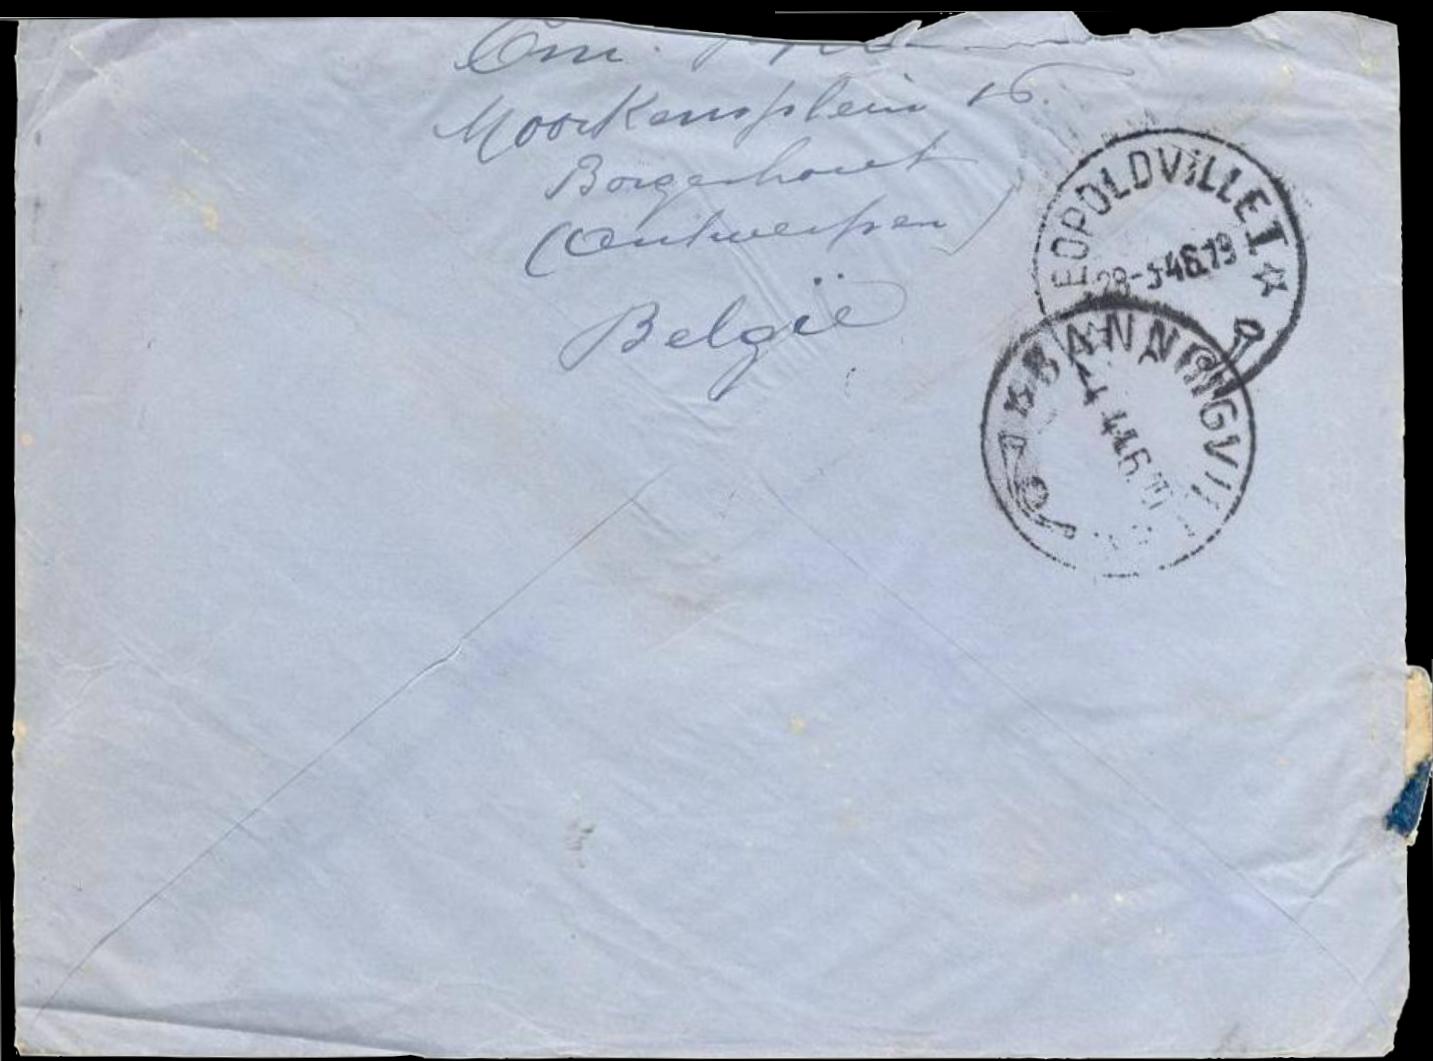 Em.
Moorkensplein 16.
Borgerhout
(Antwerpen)
België
LEOPOLDVILLE 1
28-3-46.19
BANNINGVILLE